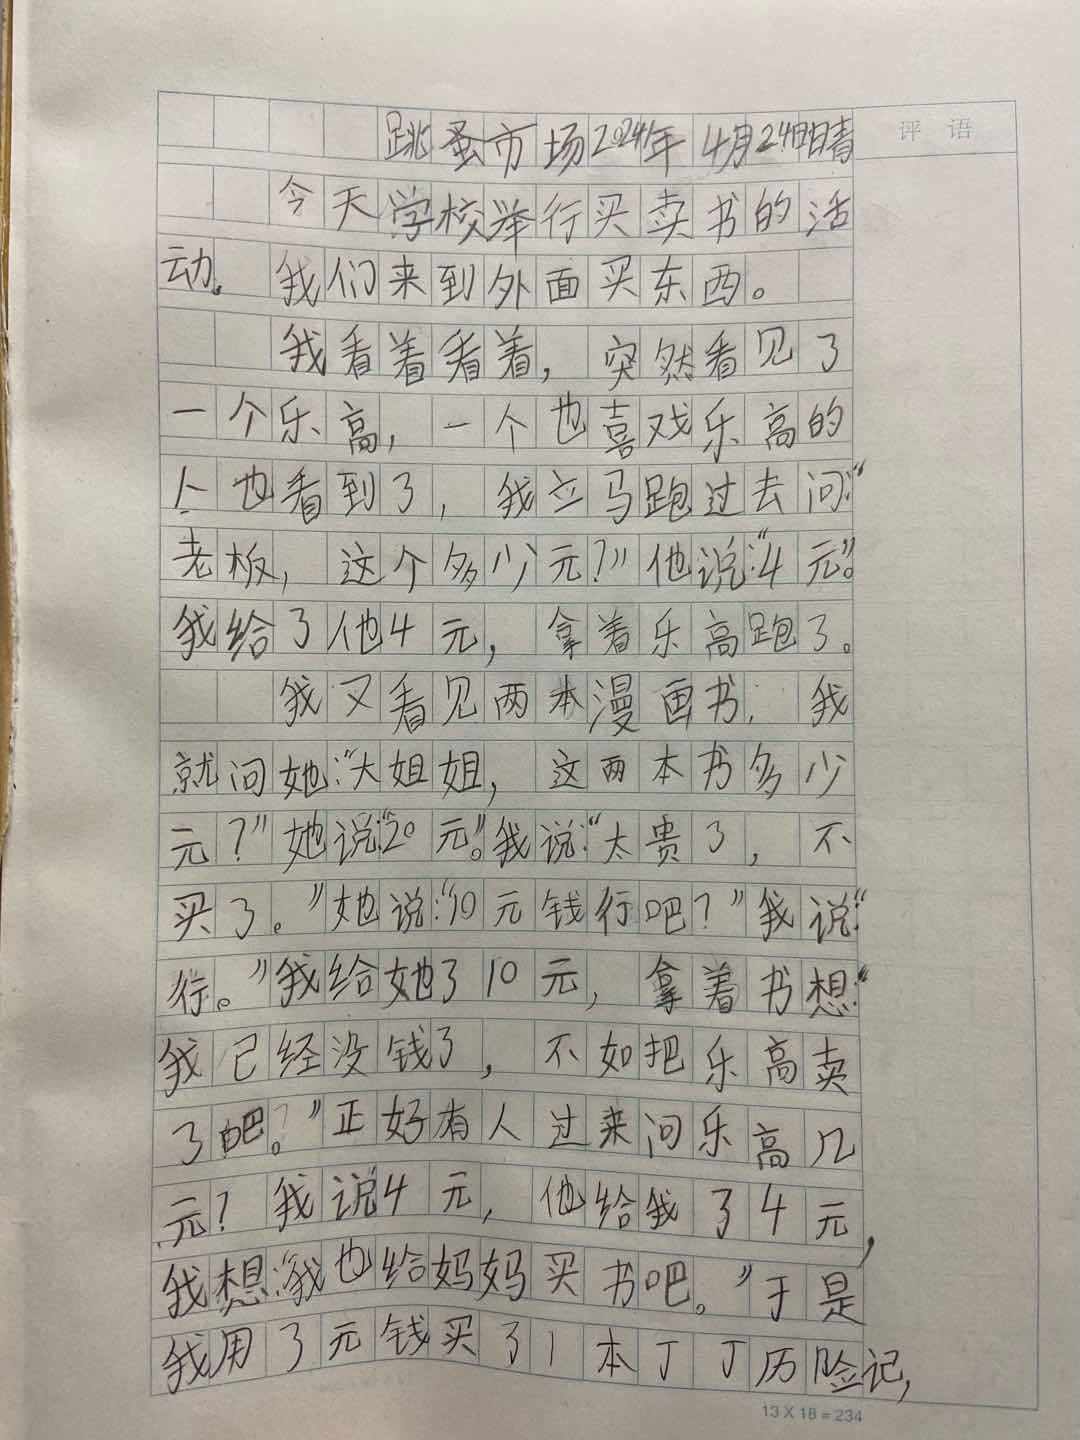 评语
跳蚤市场2024年4月24日晴
今天学校举行买卖书的活
动。我们来到外面买东西。
我看着看着，突然看见了
一个乐高，一个也喜戏乐高的
人也看到了，我立马跑过去问：“
老板，这个多少元？”他说：“4元”。
我给了他4元，拿着乐高跑了。
我又看见两本漫画书，我
就问她：“大姐姐，这两本书多少
元？”她说：“20元”。我说：“太贵了，不
买了。”她说：“10元钱行吧？”我说：“
行。”我给她了10元，拿着书想：“
我已经没钱了，不如把乐高卖
了吧。”正好有人过来问乐高几
元？我说4元，他给我了4元，
我想：“我也给妈妈买书吧。”于是
我用了元钱买了1本丁丁历险记，
13×18=234